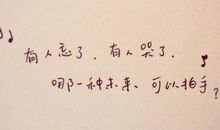 有人忘了，有人哭了．
哪一种未来、可以拍手？